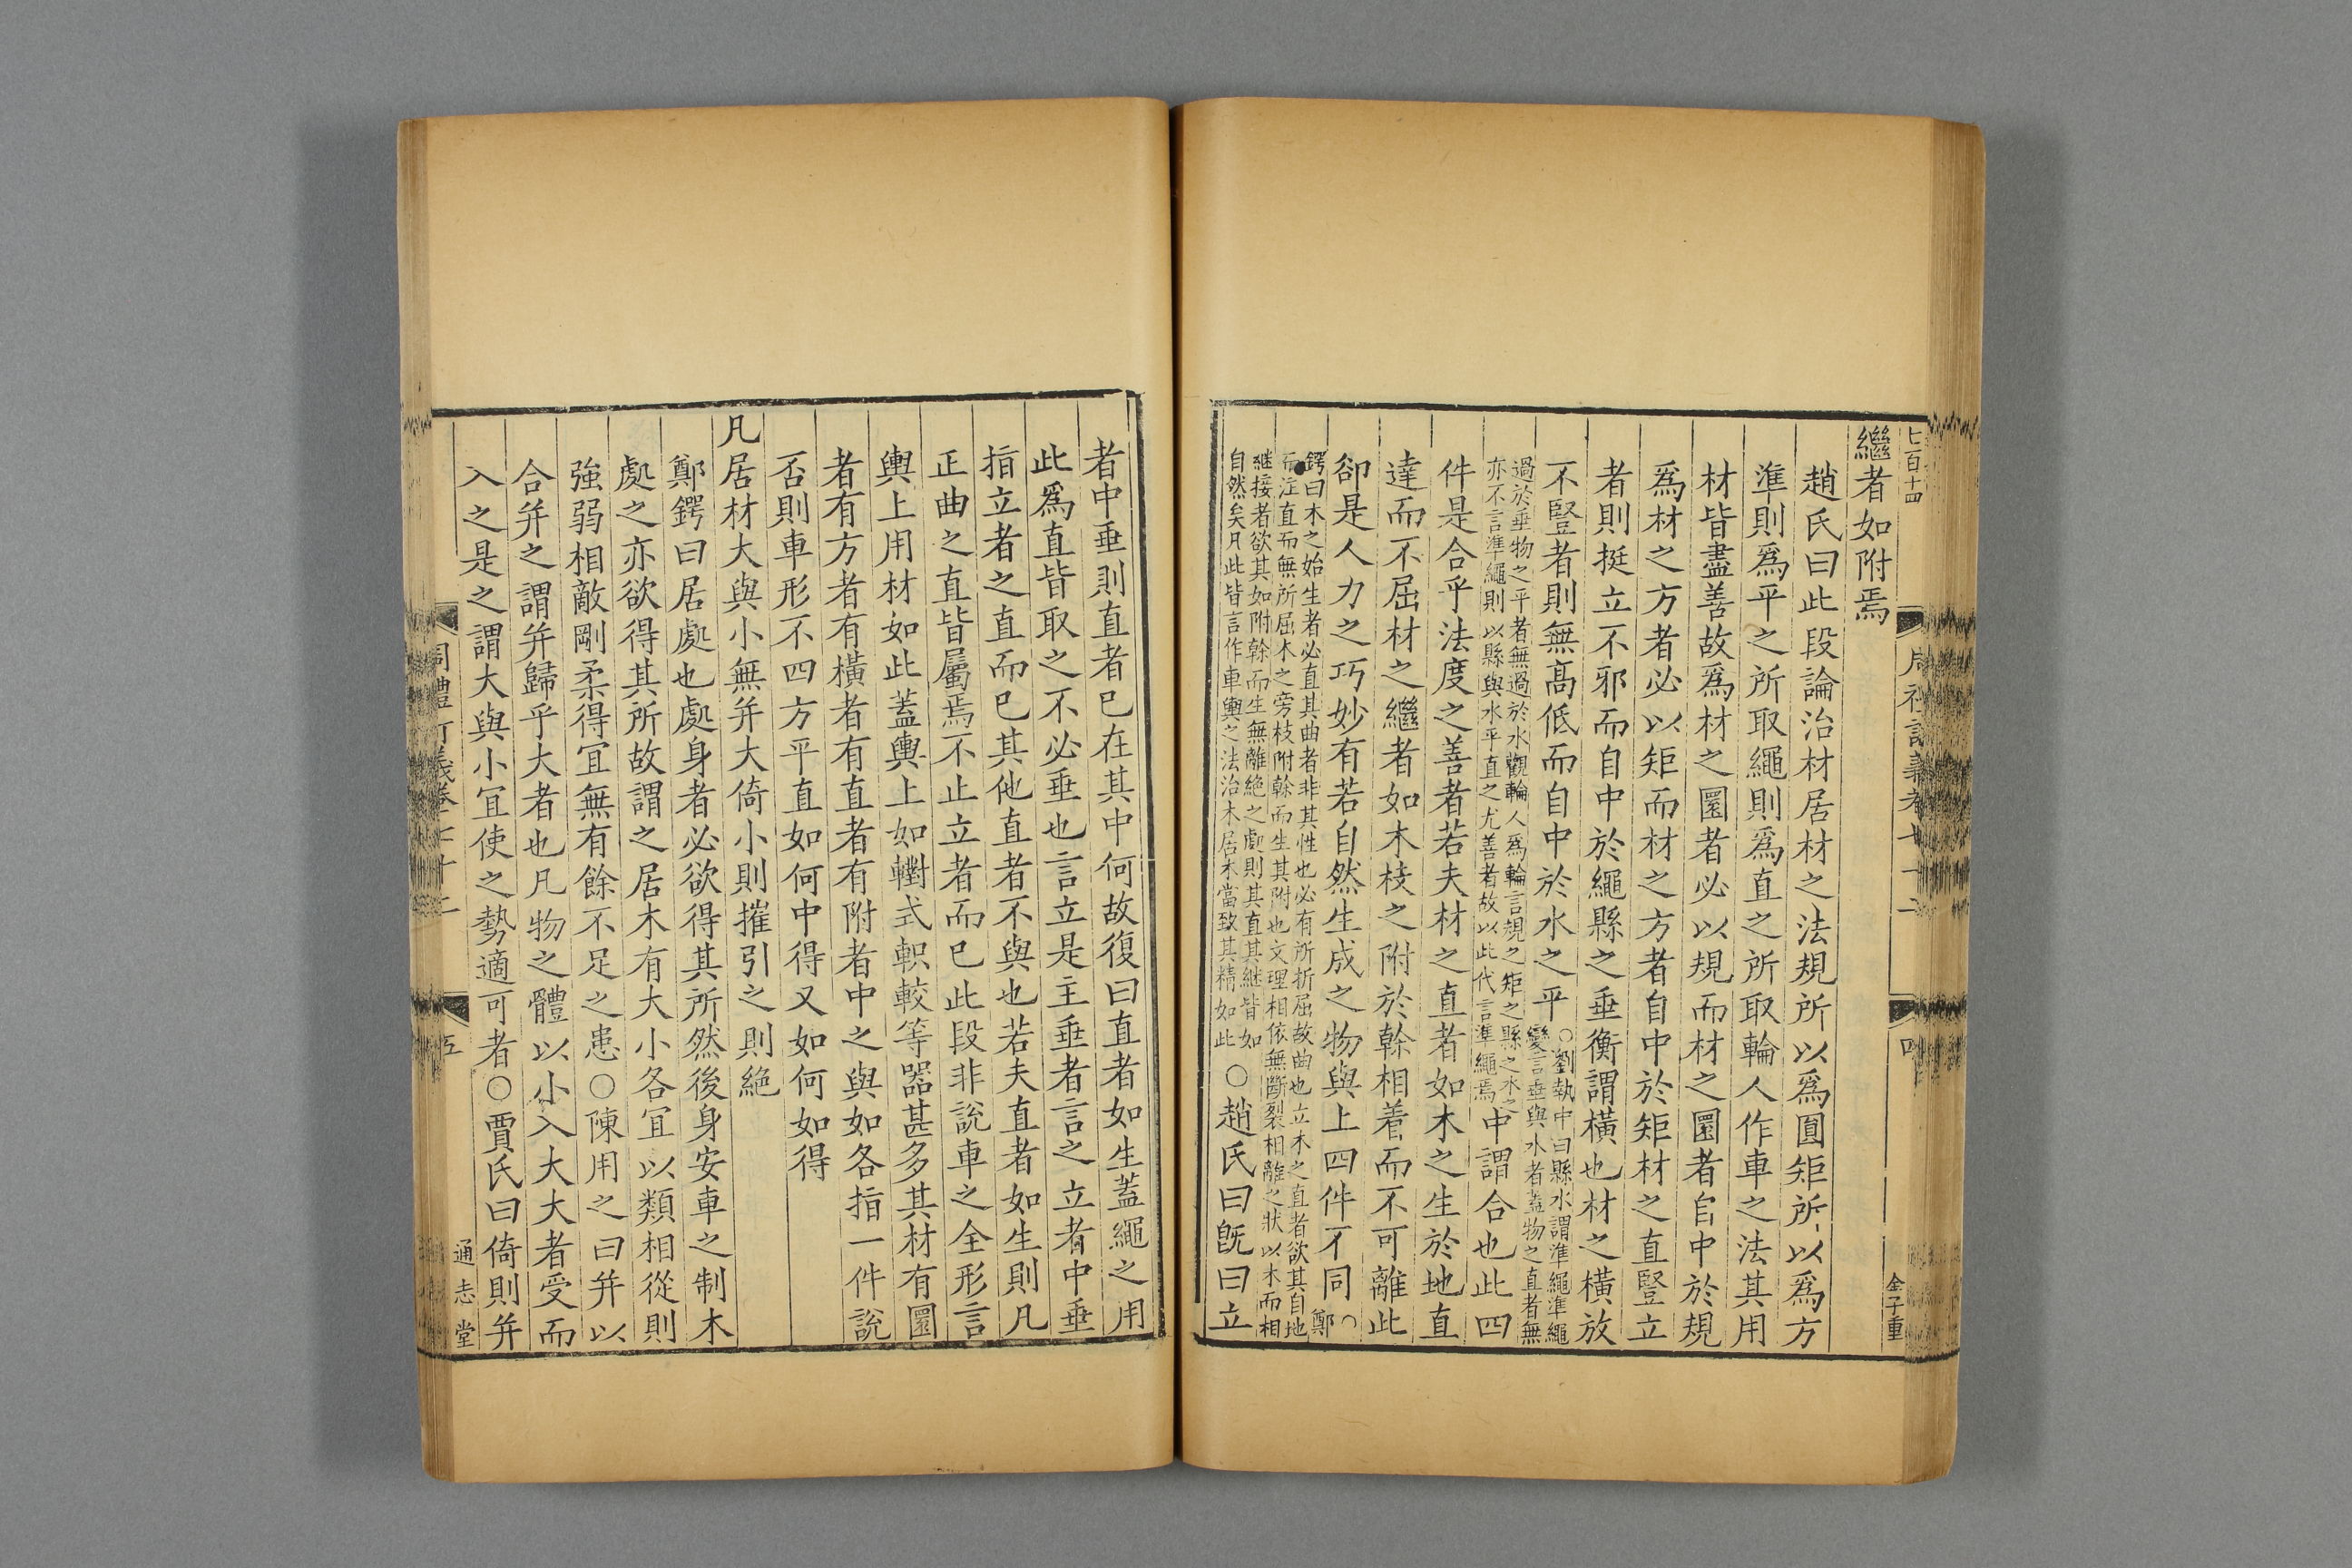 繼者如附焉
趙氏曰此段論治材居材之法規所以爲圓矩所以爲方
準則爲平之所取繩則爲直之所取輪人作車之法其用
材皆盡善故爲材之圜者必以規而材之圜者自中於規
爲材之方者必以矩而材之方者自中於矩材之直豎立
者則挺立不邪而自中於繩縣之垂衡謂橫也材之橫放
不豎者則無高低而自中於水之平○劉執中曰縣水謂準繩準繩
變言垂與水者蓋物之直者無
過於垂物之平者無過於水觀輪人爲輪言規之矩之縣之水之
亦不言準繩則以縣與水平直之尤善者故以此代言準繩焉中謂合也此四
件是合乎法度之善者若夫材之直者如木之生於地直
達而不屈材之繼者如木枝之附於幹相着而不可離此
卻是人力之巧妙有若自然生成之物與上四件不同○
鄭
鍔曰木之始生者必直其曲者非其性也必有所折屈故曲也立木之直者欲其自地
而注直而無所屈木之旁枝附幹而生其附也文理相依無斷裂相離之狀以木而相
継接者欲其如附幹而生無離絶之處則其直其継皆如
自然矣凡此皆言作車輿之法治木居木當致其精如此○趙氏曰旣曰立
七百十四
四
金子重
者中垂則直者已在其中何故復曰直者如生蓋繩之用
此爲直皆取之不必垂也言立是主垂者言之立者中垂
指立者之直而已其他直者不與也若夫直者如生則凡
正曲之直皆屬焉不止立者而已此段非說車之全形言
輿上用材如此蓋輿上如轛式軹較等器甚多其材有圜
者有方者有橫者有直者有附者中之與如各指一件說
否則車形不四方平直如何中得又如何如得
凡居材大與小無幷大倚小則摧引之則絶
鄭鍔曰居處也處身者必欲得其所然後身安車之制木
處之亦欲得其所故謂之居木有大小各冝以類相從則
強弱相敵剛柔得冝無有餘不足之患○陳用之曰幷以
合幷之謂幷歸乎大者也凡物之體以小入大大者受而
入之是之謂大與小冝使之勢適可者○賈氏曰倚則幷
五
通志堂